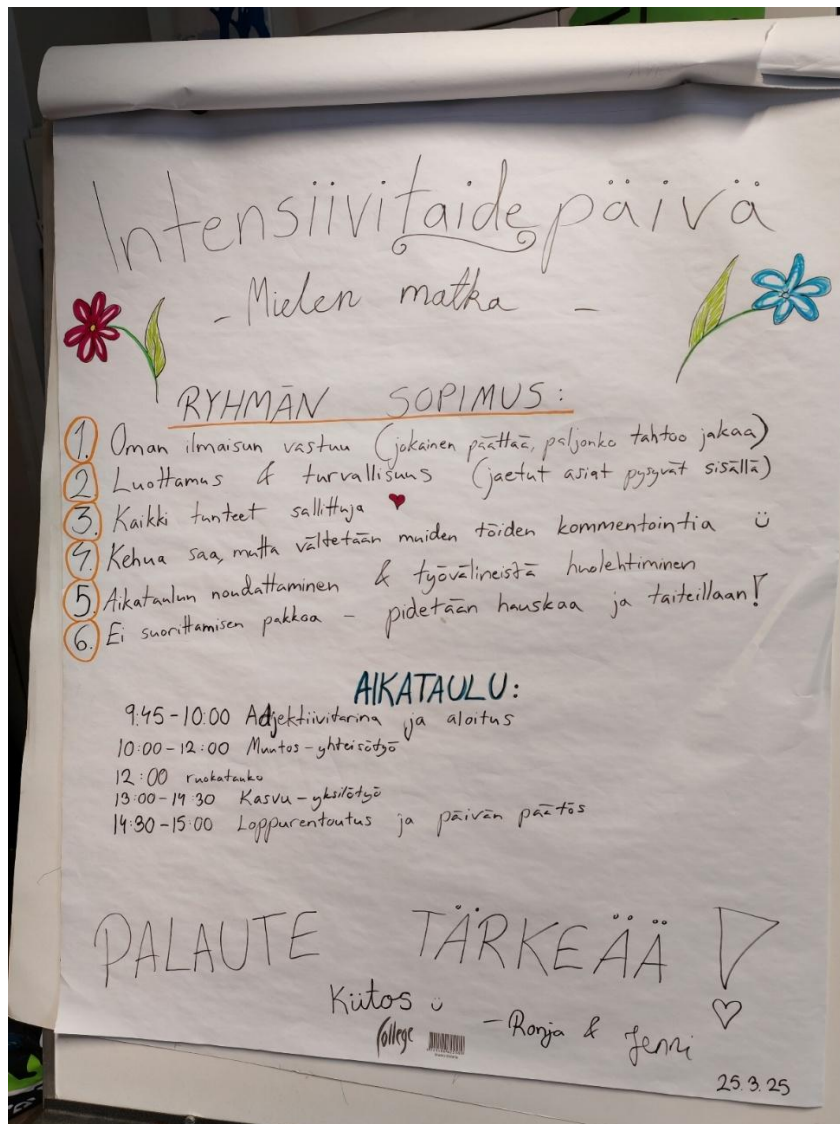 Intensiivitaidepäivä
- Mielen matka -
RYHMÄN SOPIMUS:
1. Oman ilmaisun vastuu (jokainen päättää, paljonko tahtoo jakaa)
2 Luottamus & turvallisuus (jaetut asiat pysyvät sisällä)
3. Kaikki tunteet sallittuja ♥
4. Kehua saa, mutta vältetään muiden töiden kommentointia ü
5 Aikataulun noudattaminen & työvälineistä huolehtiminen
6. Ei suorittamisen pakkoa - pidetään hauskaa ja taiteillaan!
AIKATAULU:
9:45-10:00 Adjektiivitarina ja aloitus
10:00-12:00 Muutos-yhteisötyö
12:00 ruokatauko
13:00-14:30 Kasvu-yksilötyö
14:30-15:00 Loppurentoutus ja päivän päätös
PALAUTE TÄRKEÄÄ!
Kiitos ü
-Ronja & Jenni
College
25.3.25